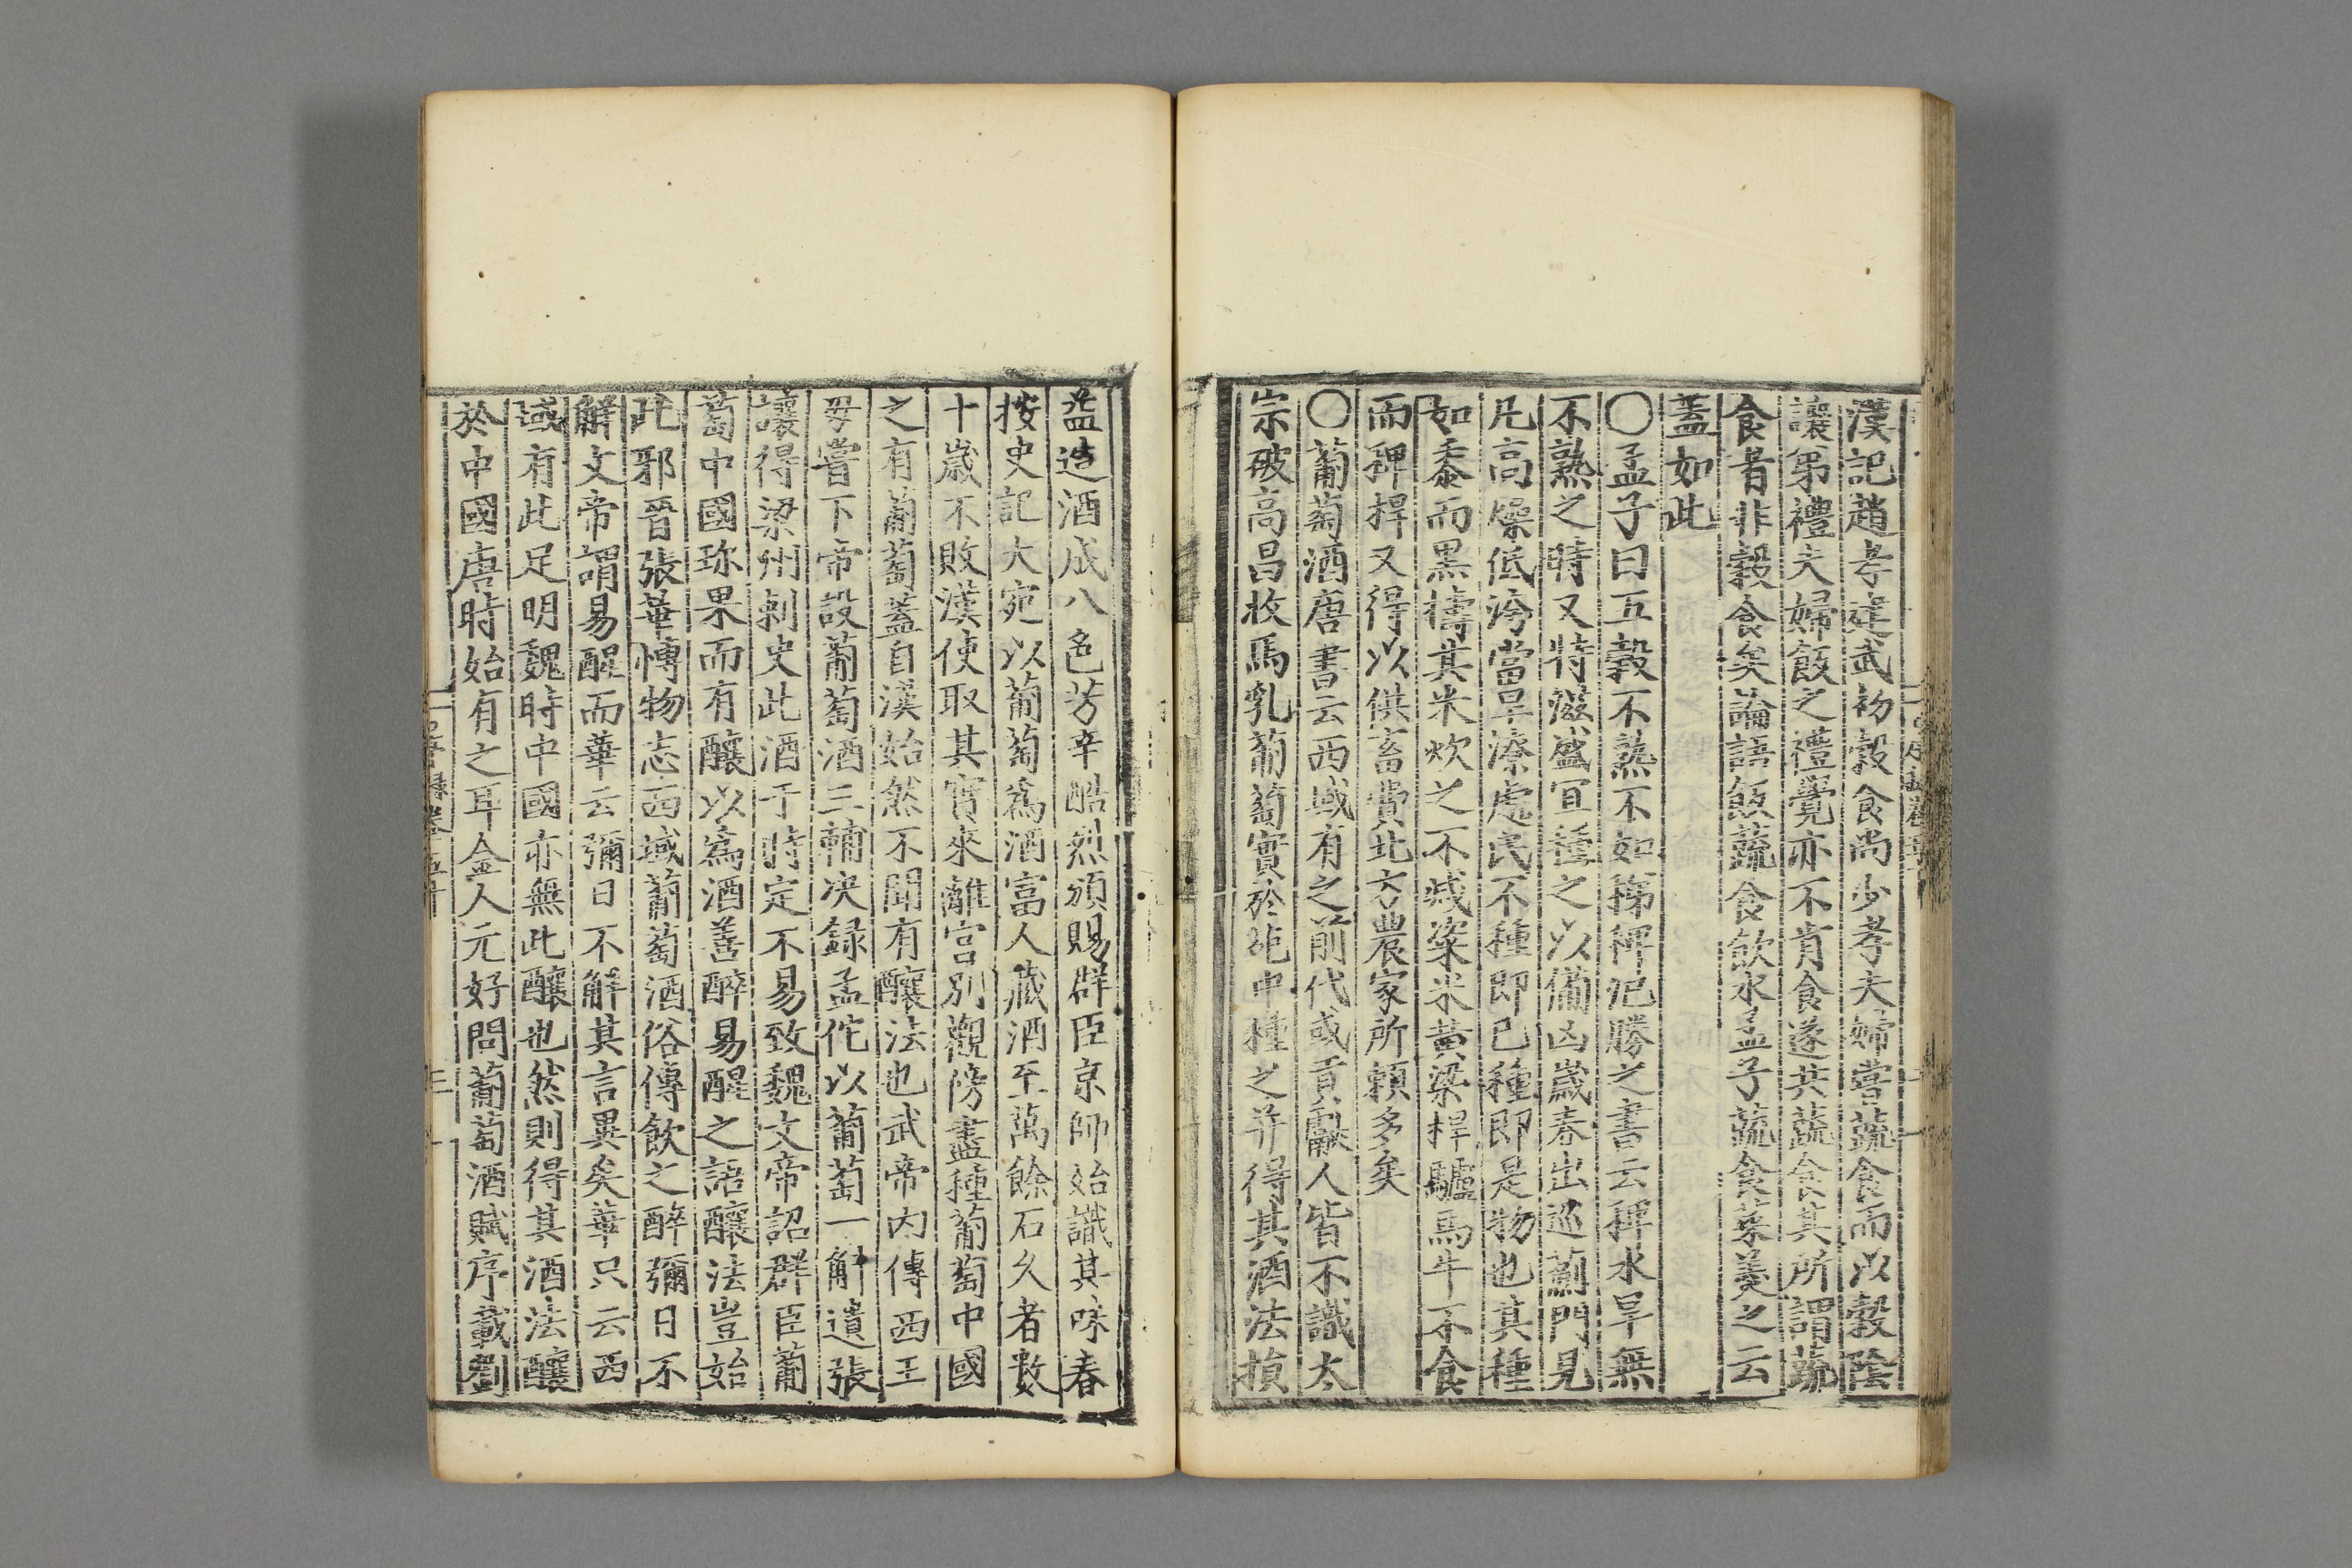 漢記趙孝建武初穀食尚少孝夫婦嘗蔬食而以穀陰
讓弟禮夫婦飯之禮覺亦不肯食遂共蔬食其所謂蔬
食者非穀食矣論語飯蔬食飲水孟子蔬食菜羹之云
蓋如此
〇孟子曰五穀不熟不如稊稗氾勝之書云稗水旱無
不熟之時又特滋盛宜種之以備凶歲春出巡薊門見
凡高燥低洿當旱潦處民不種即已種即是物也其種
如黍而黑擣其米炊之不減粢米黃粱稈驢馬牛不食
而稗稈又得以供畜費北方農家所賴多矣
〇葡萄酒唐書云西域有之前代或貢獻人皆不識太
宗破高昌收馬乳葡萄實於苑中種之并得其酒法損
益造酒成八色芳辛酷烈頒賜群臣京師始識其味春
按史記大宛以葡萄為酒富人藏酒至萬餘石久者數
十歲不敗漢使取其實來離宮別觀傍盡種葡萄中國
之有葡萄蓋自漢始然不聞有釀法也武帝內傳西王
母嘗下帝設葡萄酒三輔決録孟佗以葡萄一斛遺張
讓得梁州刺史此酒于時定不易致魏文帝詔群臣葡
萄中國珍果而有釀以為酒善醉易醒之語釀法豈始
此邪晉張華博物志西域葡萄酒俗傳飲之醉彌日不
解文帝謂易醒而華云彌日不解其言異矣華只云西
域有此足明魏時中國亦無此釀也然則得其酒法釀
於中國唐時始有之耳金人元好問葡萄酒賦序載劉